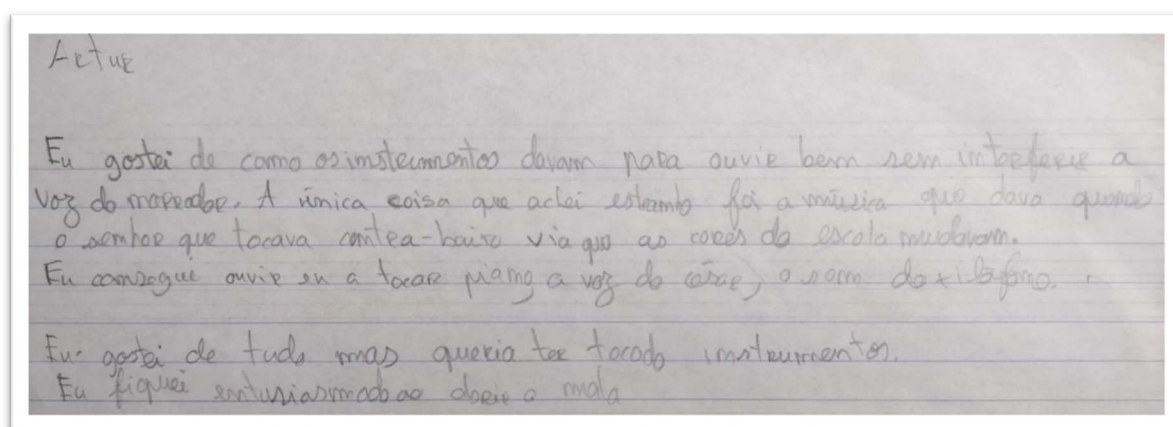 Artur
Eu gostei de como os instrumentos davam para ouvir bem sem interferir a
voz do narrador. A única coisa que achei estranho foi a música que dava quando
o senhor que tocava contra-baixo via que as cores da escola mudavam.
Eu consegui ouvir eu a tocar piano, a voz do o som do xilofone.
Eu gostei de tudo mas queria ter tocado instrumentos.
Eu fiquei entusiasmado ao abrir a mala